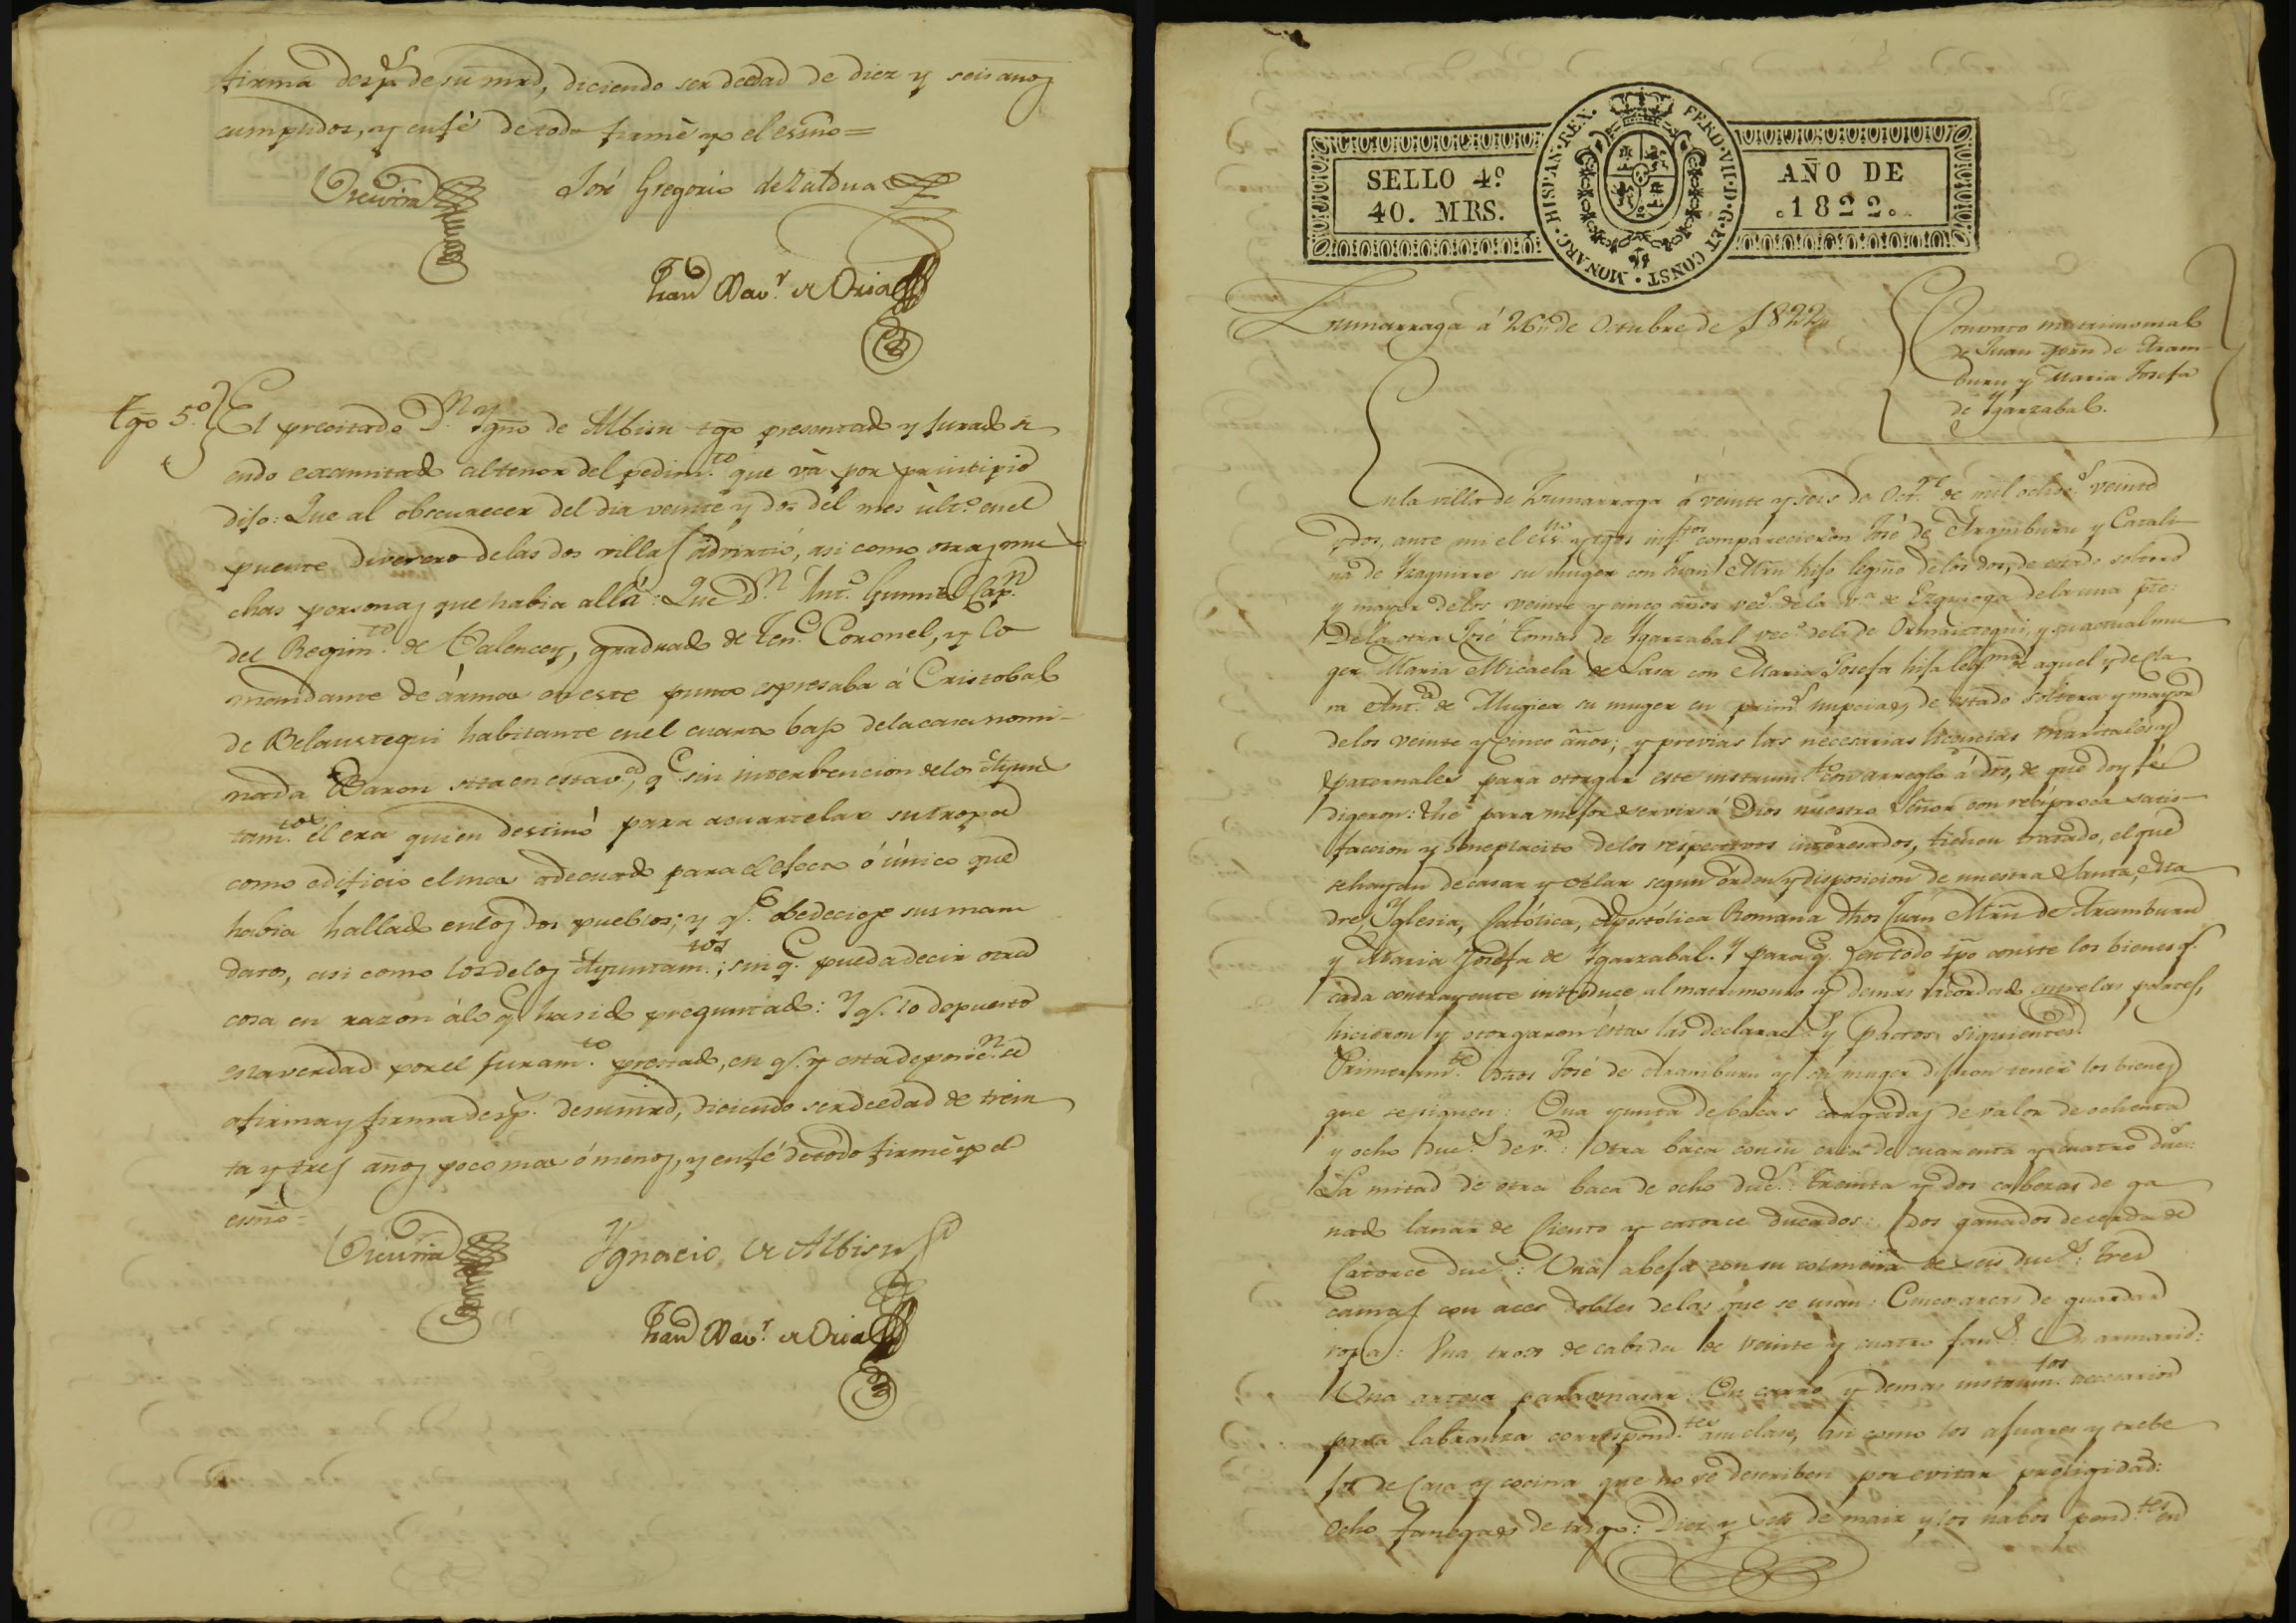 firma desp.s de su mrd, diciendo ser de edad de diez y seis anos
cumplidos, y en fé de todo firmè yo el essno=
José Gregorio de Zatdua
Fran.co Xav.r de Oria
Tgo 5.º El precitado D.n Ygno de Albisu tgo presentado y jurado si
endo examinado al tenor del pedim.to que vá por principio
dijo: Que al obscurecer del dia veinte y dos del mes últ.º en el
puente divorero de las dos villas advirtió, asi como otras mu
chas personas que habia allá: Que D.n Ant.º Cap.n
del Regim.to de Valencey, graduado de Ten.e Coronel, y Co
mandante de ármas en este punto espresaba á Cristobal
de Belaustegui habitante en el cuarto bajo de la casa nomi-
nada Baron sita en esta v.a, q.e sin interbencion de los Ayun
tam.tos él era quien destinó para acuartelar su tropa
como edificio el mas adecuado para el efecto ó único que
habia hallado en los dos pueblos; y q.e obedeciese sus man
datos, asi como los de los Ayuntam.tos; sin q.e pueda decir otra
cosa en razon á lo q.e ha sido preguntado: Y q.e lo depuesto
es la verdad por el juram.to prestado, en q.e y esta deposic.n se
afirma y firma desp.s de su mrd, diciendo ser de edad de trein
ta y tres años poco mas ó menos, y en fé de todo firmè yo el
essno=
Ygnacio de Albisu
Fran.co Xav.r de Oria
SELLO 4º
40. MRS.
HISPAN·REX. FERD·VII·D·G·ET CONST·MONARC·
AÑO DE
.1822.
Zumarraga á 26, de Octubre de 1822
Contrato matrimonial
de Juan Mrn de Aram-
buru y Maria Josefa
de Ygarzabal.
En la villa de Zumarraga á veinte y seis de Oct.re de mil ochoc.s veinte
y dos, ante mi el ess.no y tgos inf.tos comparecieron José de Aramburu y Catali-
na de Yzaguirre su muger con Juan Mrn hijo legmo de los dos, de estado soltero
y mayor de los veinte y cinco años vec.s de la v.a de Ezquioga de la una pte:
De la otra José Tomas de Ygarzabal vec.º de la de Ormaiztegui, y su actual mu
ger Maria Micaela de Lasa con Maria Josefa hija leg.ma de aquel y de Cla
ra Ant.a de Mugica su muger en prim.s nupcias, de estado soltera y mayor
de los veinte y cinco años; y previas las necesarias licencias maritales y
paternales para otorgar este instrum.to con arreglo á dro, de que doy fé
digeron: Que para mejor servir á Dios nuestro Señor con reciproca satis-
faccion y beneplacito de los respectivos interesados, tienen tratado, el que
se hayan de casar y velar segun orden y disposicion de nuestra Santa, Ma
dre, Yglesia, Católica, Apostólica Romana dhos Juan Mrn de Aramburu
y Maria Josefa de Ygarzabal. Y para q.e en todo tpo conste los bienes q.e
cada contrayente introduce al matrimonio y demas acordado entre las partes,
hicieron y otorgaron éstas las declarac.s y pactos siguientes
Primeram.te dhos José de Aramburu y su muger dijeron tener los bienes
que se siguen: Una yunta de bacas cargadas de valor de ochenta
y ocho duc.s de v.n: Otra baca con su cria de cuarenta y cuatro duc.s:
La mitad de otra baca de ocho duc.s: treinta y dos cabezas de ga
nado lanar de Ciento y catorce ducados: Dos ganados de cerda de
Catorce duc.s: Una abeja con su colmena de seis duc.s: Tres
camas con aces dobles de las que se usan: Cinco arcas de guardar
ropa: Una troje de cabida de veinte y cuatro fan.s: Un armario:
Una artesa para amasar: Un carro y demas instrum.tos necesarios
para labranza correspond.tes a su clase, asi como los ajuares y trebe
jos de Casa y cocina que no se describen por evitar proligidad:
Ocho fanegas de trigo: Diez y seis de maiz y los nabos pend.tes en